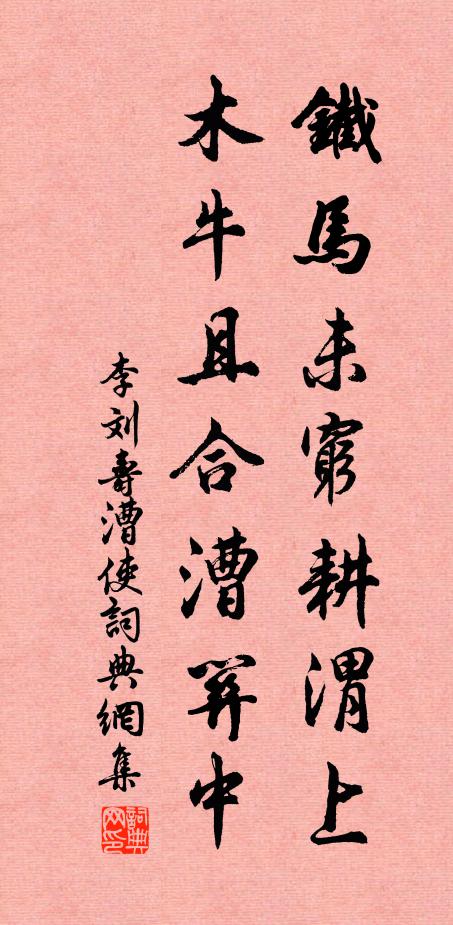 鐵馬未窮耕渭上
木牛且合漕關中
李刘壽漕使詞典網集
詞典网印